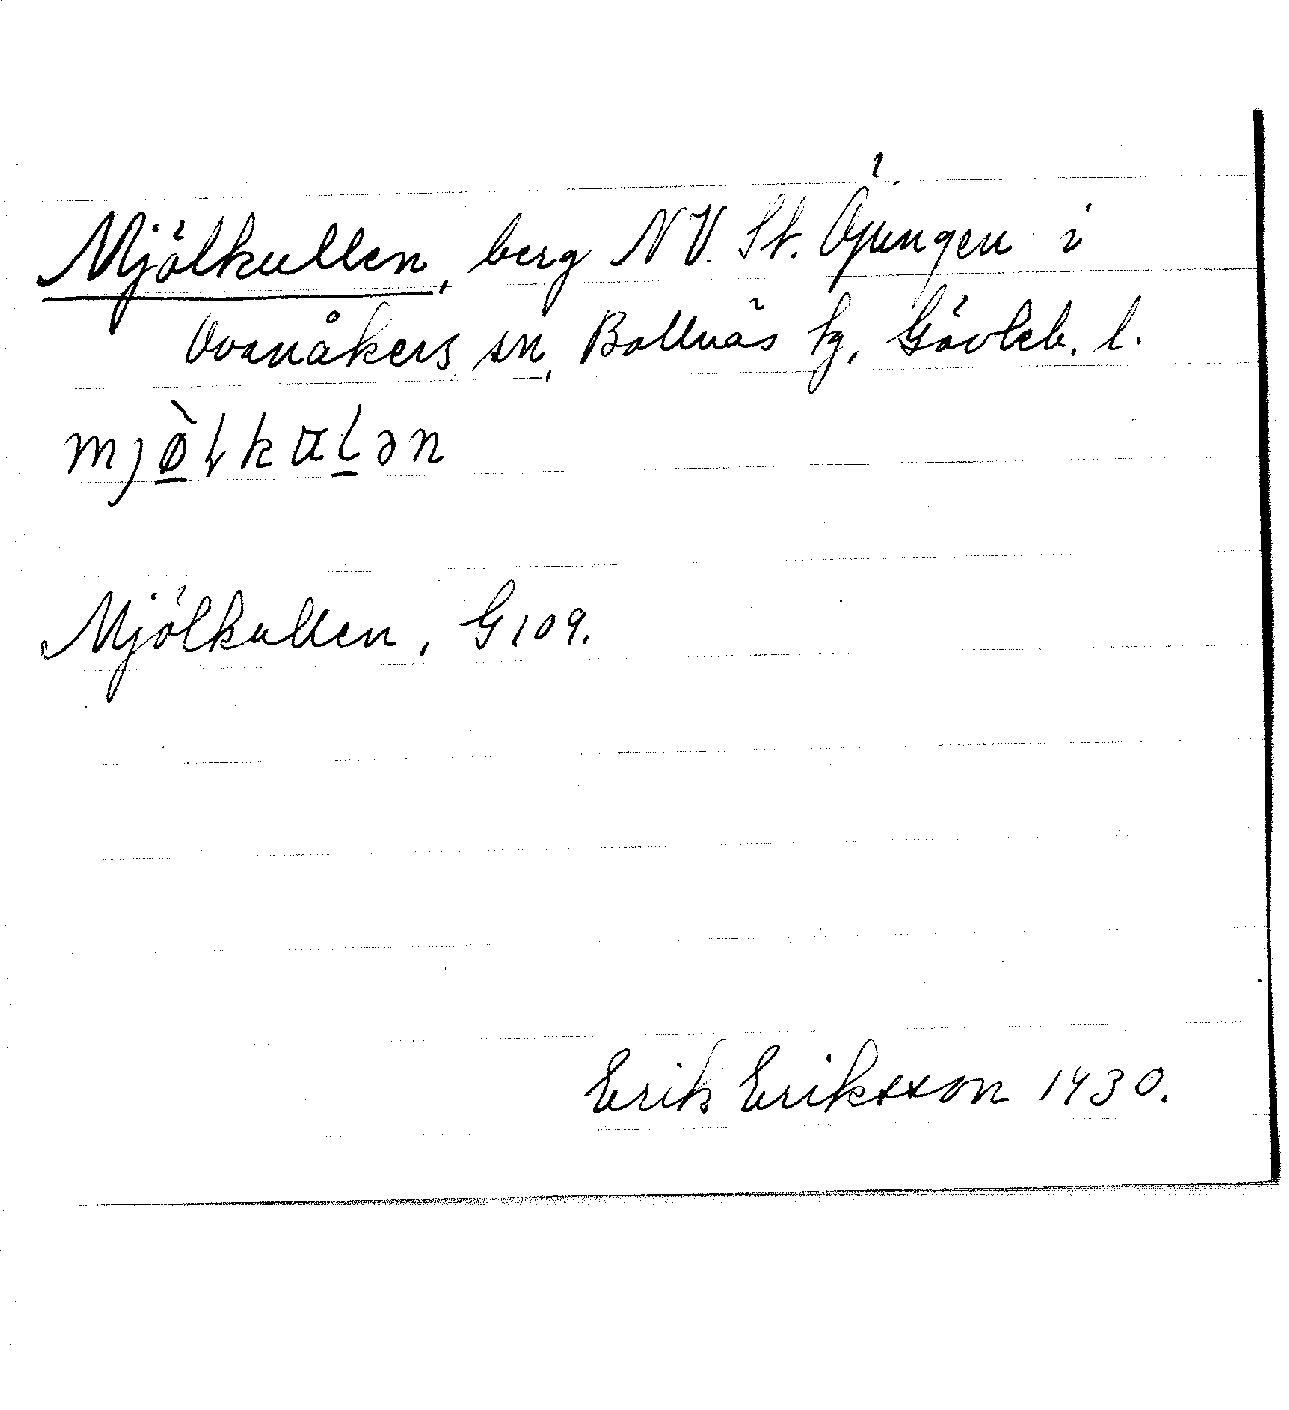 Mjölkullen, berg NV. St. Öjungen i
Ovanåkers sn, Bollnäs tg, Gävleb. l.
Mjölkullen, G 109.
Erik Eriksson 1930.